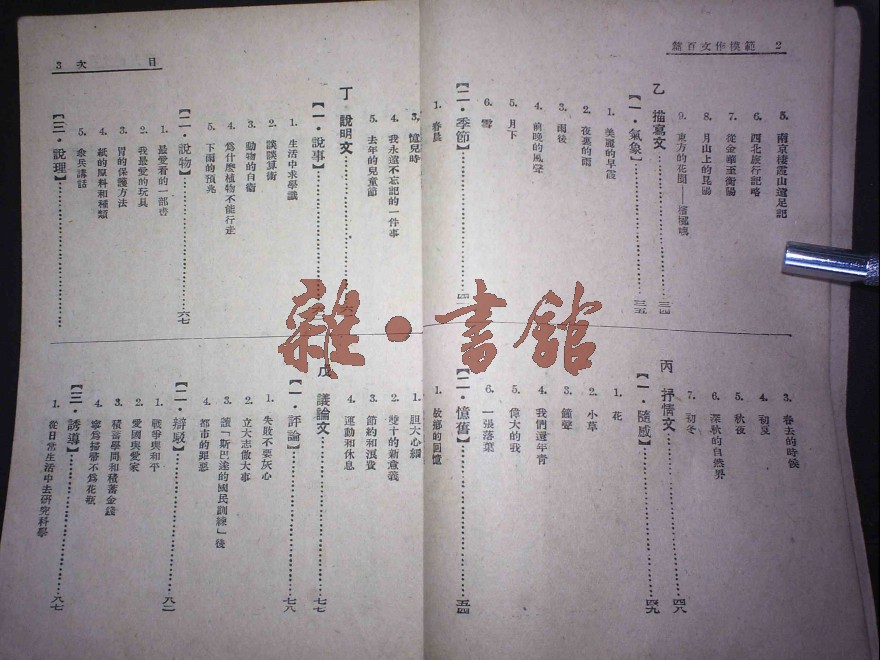 2 範模作文百篇
5. 南京棲霞山遠足記
6. 西北旅行記略
7. 從金華至衡陽
8. 月山上的昆陽
9. 東方的花園——檳榔嶼
乙 描寫文……三四
【一·氣象】……三五
1. 美麗的早霞
2. 夜裏的雨
3. 雨後
4. 前晚的風聲
5. 月下
6. 雪
【二·季節】……四
1. 春晨
3. 春去的時候
4. 初夏
5. 秋夜
6. 深秋的自然界
7. 初冬
丙 抒情文……四八
【一·隨感】……四九
1. 花
2. 小草
3. 鐘聲
4. 我們還年青
5. 偉大的我
6. 一張落葉
【二·憶舊】……五四
1. 故鄉的回憶
目次 3
3. 憶兒時
4. 我永遠不忘記的一件事
5. 去年的兒童節
丁 說明文……六
【一·說事】……
1. 生活中求學識
2. 談談算術
3. 動物的自衛
4. 爲什麼植物不能行走
5. 下雨的預兆
【二·說物】……六七
1. 最愛看的一部書
2. 我最愛的玩具
3. 胃的保護方法
4. 紙的原料和種類
5. 傘兵講話
【三·說理】……
1. 胆大心細
2. 雙十的新意義
3. 節約和浪費
4. 運動和休息
戊 議論文……七七
【一·評論】……七八
1. 失敗不要灰心
2. 立大志做大事
3. 讀「斯巴達的國民訓練」後
4. 都市的罪惡
【二·辯駁】……八二
1. 戰爭與和平
2. 愛國與愛家
3. 積蓄學問和積蓄金錢
4. 寧爲掃帚不爲花瓶
【三·誘導】……八七
1. 從日常生活中去研究科學
雜·書館